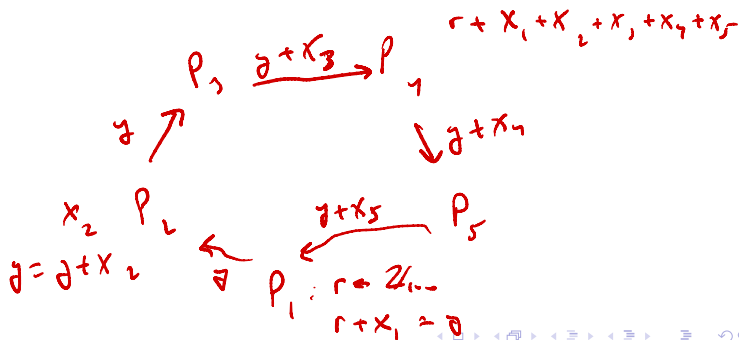 r + x₁ + x₂ + x₃ + x₄ + x₅
P₃ y + x₃ P₄
y
y + x₄
x₂ P₂
y = y + x₂
y + x₅ P₅
y
P₁ : r ←
r + x₁ = y